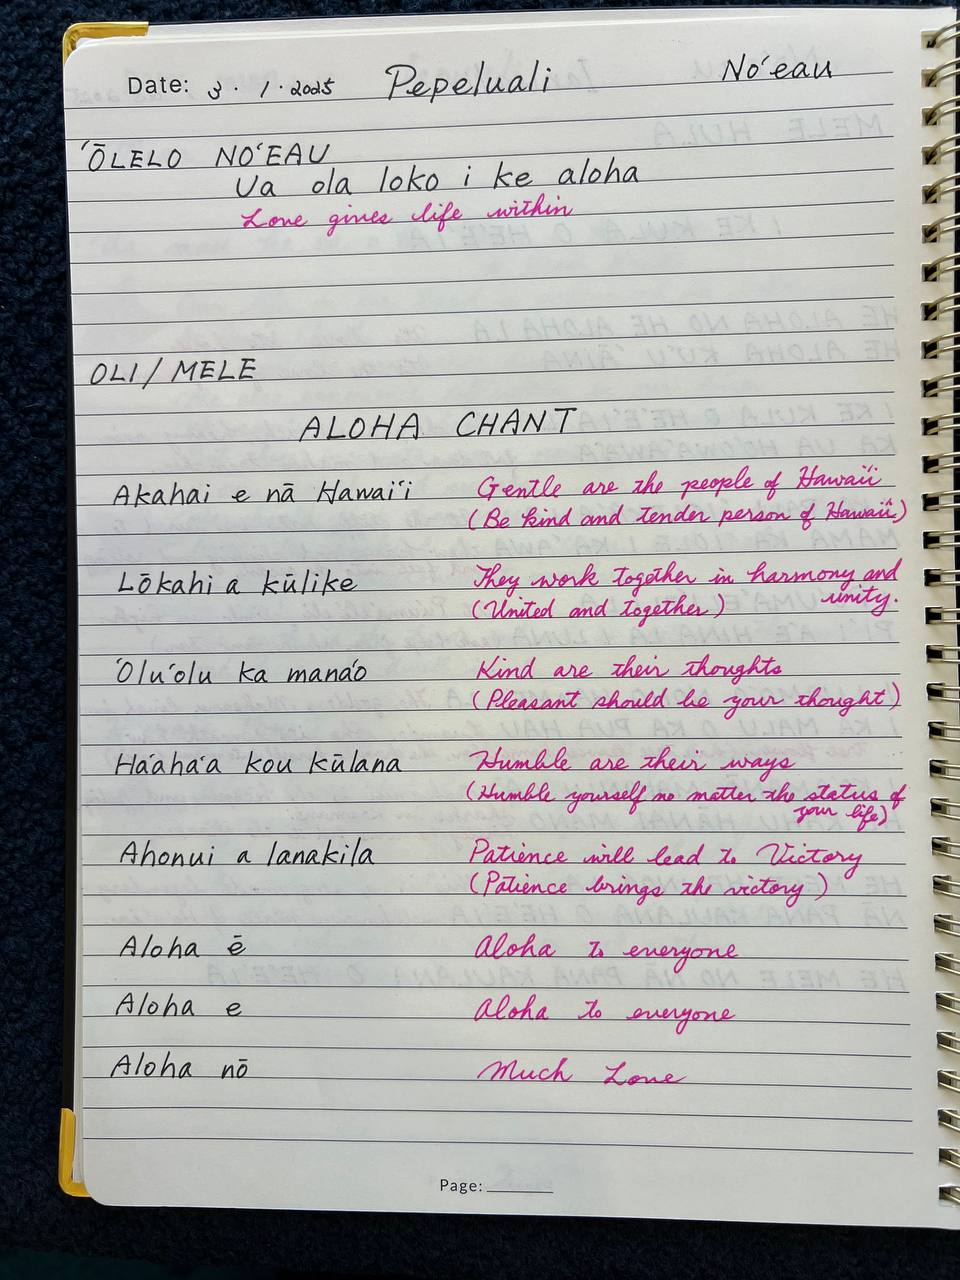 Date: 3 · 1 · 2025 Pepeluali No'eau
'ŌLELO NO'EAU
Ua ola loko i ke aloha
Love gives life within
OLI/MELE
ALOHA CHANT
Akahai e nā Hawai'i Gentle are the people of Hawaii
(Be kind and tender person of Hawaii)
Lōkahi a kūlike They work together in harmony and
(United and together) unity.
'Olu'olu ka mana'o Kind are their thoughts
(Pleasant should be your thought)
Ha'aha'a kou kūlana Humble are their ways
(Humble yourself no matter the status of
your life)
Ahonui a lanakila Patience will lead to Victory
(Patience brings the victory)
Aloha ē Aloha to everyone
Aloha e Aloha to everyone
Aloha nō Much Love
Page: